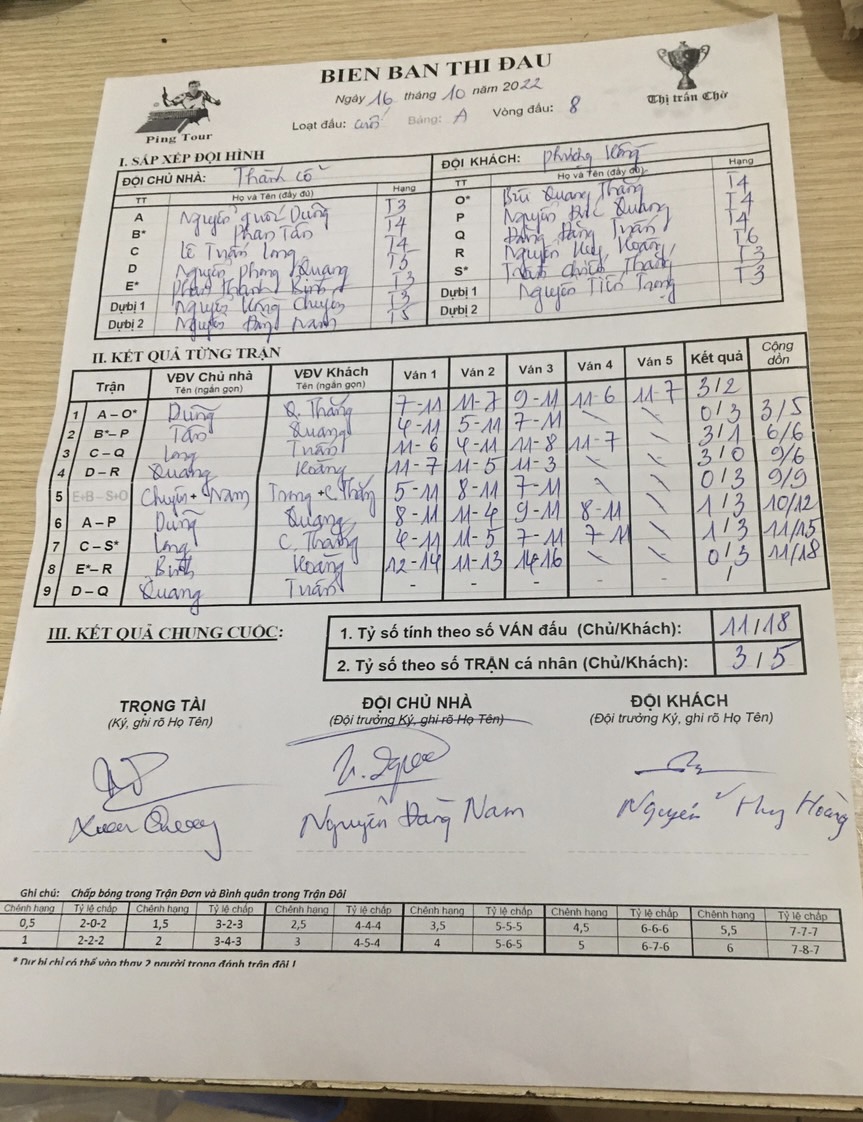 BIEN BAN THI ĐAU
Ngày 16 tháng 10 năm 2022
Loạt đấu: cuối Bảng: A Vòng đấu: 8
Ping Tour
Thị trấn Chờ
I. SẮP XẾP ĐỘI HÌNH
ĐỘI CHỦ NHÀ: Thành cổ ĐỘI KHÁCH: Phượng
TT Họ và Tên (đầy đủ) Hạng TT Họ và Tên (đầy đủ) Hạng
A Nguyễn Quốc Dũng T3 O* Bùi Quang Thắng T4
B* Phan Tấn T4 P Nguyễn Đức Quang T4
C Lê Tuấn Long T4 Q Đặng Đăng Tuấn T4
D Nguyễn Phong Quang T5 R Nguyễn Huy Hoàng T6
E* Phan Thanh Bình T3 S* Trần Chiến Thắng T3
Dựbị 1 Nguyễn Chuyên T3 Dựbị 1 Nguyễn Tiến Trọng T3
Dựbị 2 Nguyễn Đăng Nam T5 Dựbị 2
II. KẾT QUẢ TỪNG TRẬN
Trận VĐV Chủ nhà Tên (ngắn gọn) VĐV Khách Tên (ngắn gọn) Ván 1 Ván 2 Ván 3 Ván 4 Ván 5 Kết quả Cộng dồn
1 A – O* Dũng Q. Thắng 7-11 11-7 9-11 11-6 11-7 3/2
2 B*– P Tấn Quang 4-11 5-11 7-11 \ \ 0/3 3/5
3 C – Q Long Tuấn 11-6 4-11 11-8 11-7 \ 3/1 6/6
4 D – R Quang Hoàng 11-7 11-5 11-3 \ \ 3/0 9/6
5 E+B – S+O Chuyên + Nam Trọng + C. Thắng 5-11 8-11 7-11 \ \ 0/3 9/9
6 A – P Dũng Quang 8-11 11-4 9-11 8-11 \ 1/3 10/12
7 C – S* Long C. Thắng 4-11 11-5 7-11 7-11 \ 1/3 11/15
8 E*– R Bình Hoàng 12-14 11-13 14-16 \ \ 0/3 11/18
9 D – Q Quang Tuấn - - - - - /
III. KẾT QUẢ CHUNG CUỘC:
1. Tỷ số tính theo số VÁN đấu (Chủ/Khách): 11/18
2. Tỷ số theo số TRẬN cá nhân (Chủ/Khách): 3/5
TRỌNG TÀI ĐỘI CHỦ NHÀ ĐỘI KHÁCH
(Ký, ghi rõ Họ Tên) (Đội trưởng Ký, ghi rõ Họ Tên) (Đội trưởng Ký, ghi rõ Họ Tên)
Nguyễn Đăng Nam Nguyễn Huy Hoàng
Ghi chú: Chấp bóng trong Trận Đơn và Bình quân trong Trận Đôi
Chênh hạng Tỷ lệ chấp Chênh hạng Tỷ lệ chấp Chênh hạng Tỷ lệ chấp Chênh hạng Tỷ lệ chấp Chênh hạng Tỷ lệ chấp Chênh hạng Tỷ lệ chấp
0,5 2-0-2 1,5 3-2-3 2,5 4-4-4 3,5 5-5-5 4,5 6-6-6 5,5 7-7-7
1 2-2-2 2 3-4-3 3 4-5-4 4 5-6-5 5 6-7-6 6 7-8-7
* Dự bị chỉ có thể vào thay 2 người trong đánh trận đôi !